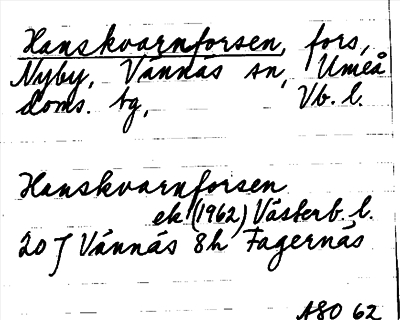 Hanskvarnforsen, fors,
Nyby, Vännäs sn, Umeå
doms. tg, Vb. l.
Hanskvarnforsen
ek (1962) Västerb. l.
20 J Vännäs 8h Fagernäs
ASO 62